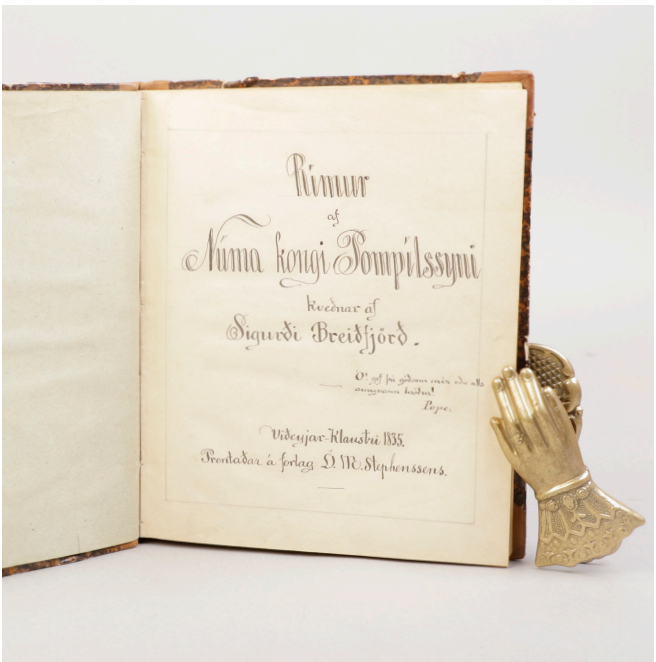 Rímur
af
Núma kongi Pompílssyni
kveðnar af
Sigurði Breiðfjörð.
Ó! gef þú góðann mér eða alls
aungvann hróður!
Pope.
Viðeyjar-Klaustri 1835.
Prentaðar á forlag Ó. M. Stephenssens.